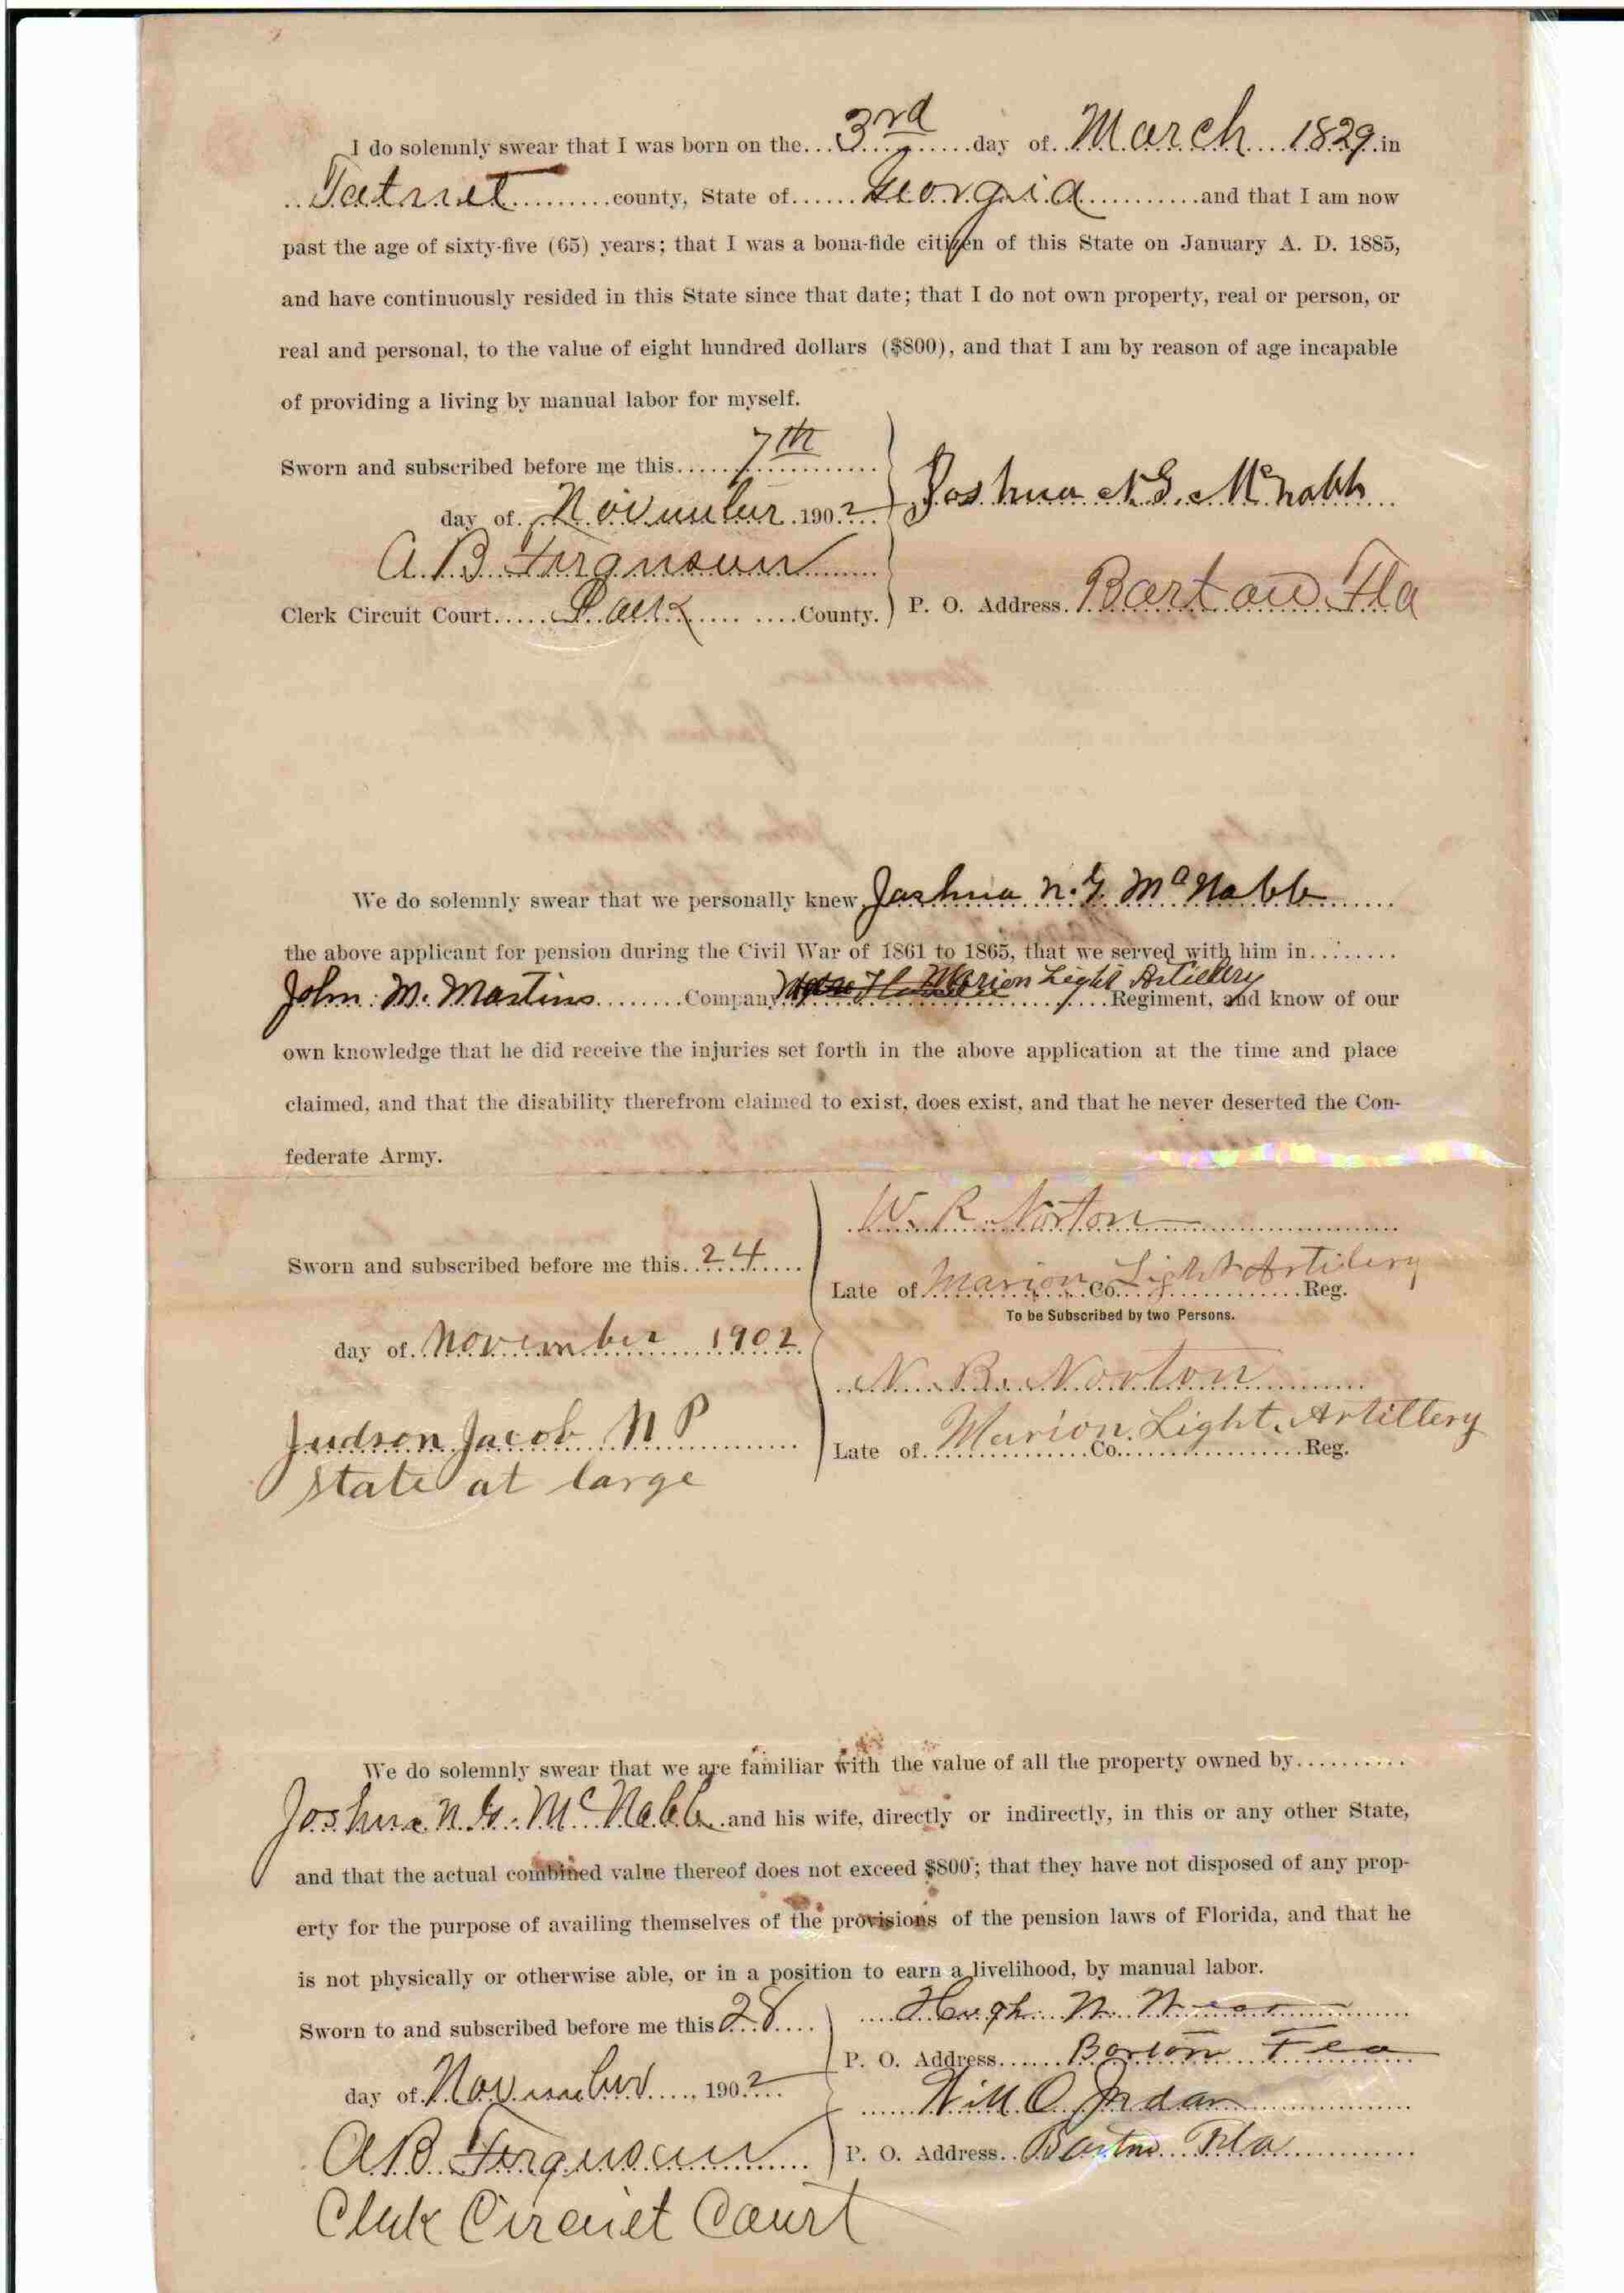 I do solemnly swear that I was born on the...3rd...day of..March...1829.in
..Tatniet.........county, State of......Georgia...........and that I am now
past the age of sixty-five (65) years; that I was a bona-fide citizen of this State on January A. D. 1885,
and have continuously resided in this State since that date; that I do not own property, real or person, or
real and personal, to the value of eight hundred dollars ($800), and that I am by reason of age incapable
of providing a living by manual labor for myself.
Sworn and subscribed before me this......7th...........
day of..November.1902...
Joshua N.G. McNabb...
A.B. Ferguson.......
Clerk Circuit Court.....Polk.........County.
P. O. Address.Bartow Fla
We do solemnly swear that we personally knew Joshua N.G. McNabb.......
the above applicant for pension during the Civil War of 1861 to 1865, that we served with him in.........
John M. Martins........Company Marion Light Artillery....Regiment, and know of our
own knowledge that he did receive the injuries set forth in the above application at the time and place
claimed, and that the disability therefrom claimed to exist, does exist, and that he never deserted the Con-
federate Army.
W. R. Norton
Sworn and subscribed before me this..24.....
Late of Marion Co. Light Artilery Reg.
To be Subscribed by two Persons.
day of..November....1902.
N. B. Norton
Judson Jacob N P
Late of..Marion Co. Light Artillery Reg.
state at large
We do solemnly swear that we are familiar with the value of all the property owned by..........
Joshua N. G. McNabb and his wife, directly or indirectly, in this or any other State,
and that the actual combined value thereof does not exceed $800; that they have not disposed of any prop-
erty for the purpose of availing themselves of the provisions of the pension laws of Florida, and that he
is not physically or otherwise able, or in a position to earn a livelihood, by manual labor.
Sworn to and subscribed before me this 28....
Hugh N.
P. O. Address......Bartow Fla
day of.November....., 1902...
Will O.
A.B. Ferguson
P. O. Address..Bartow Fla
Clerk Circuit Court